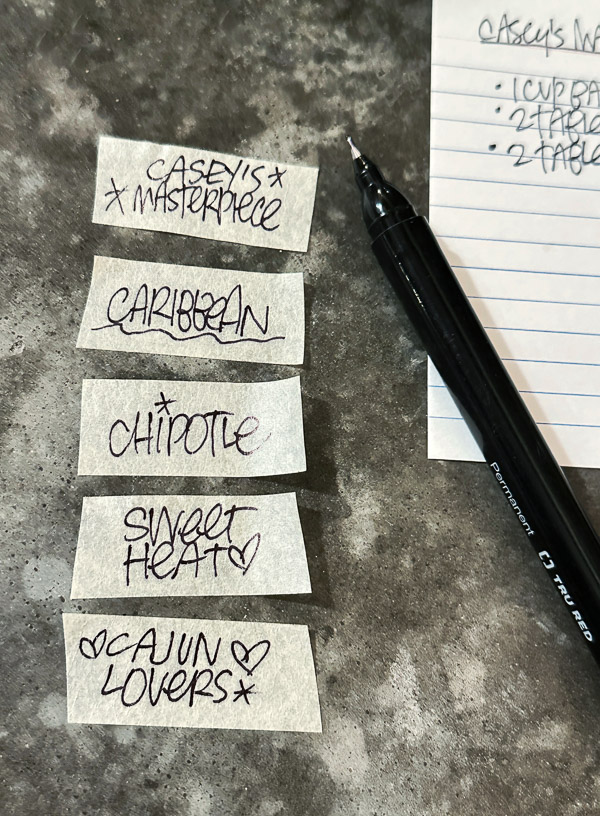 CASEY'S
MASTERPIECE
CARIBBEAN
CHIPOTLE
SWEET
HEAT
CAJUN
LOVERS
CASEY'S
• 1 CUP
• 2
• 2
Permanent
TRU RED